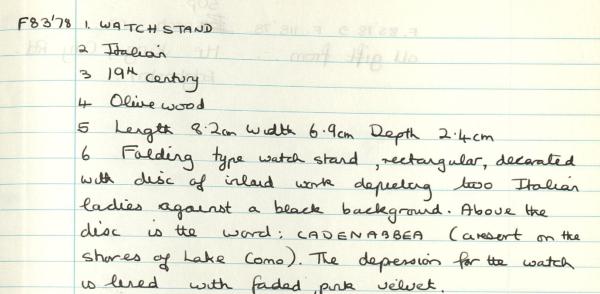 F83'78 1. WATCHSTAND
2 Italian
3 19th century
4 Olive wood
5 Length 8.2cm Width 6.9cm Depth 2.4cm
6 Folding type watch stand, rectangular, decorated
with disc of inlaid work depicting two Italian
ladies against a black background. Above the
disc is the word: CADENABBEA (a resort on the
shores of Lake Como). The depression for the watch
is lined with faded pink velvet.